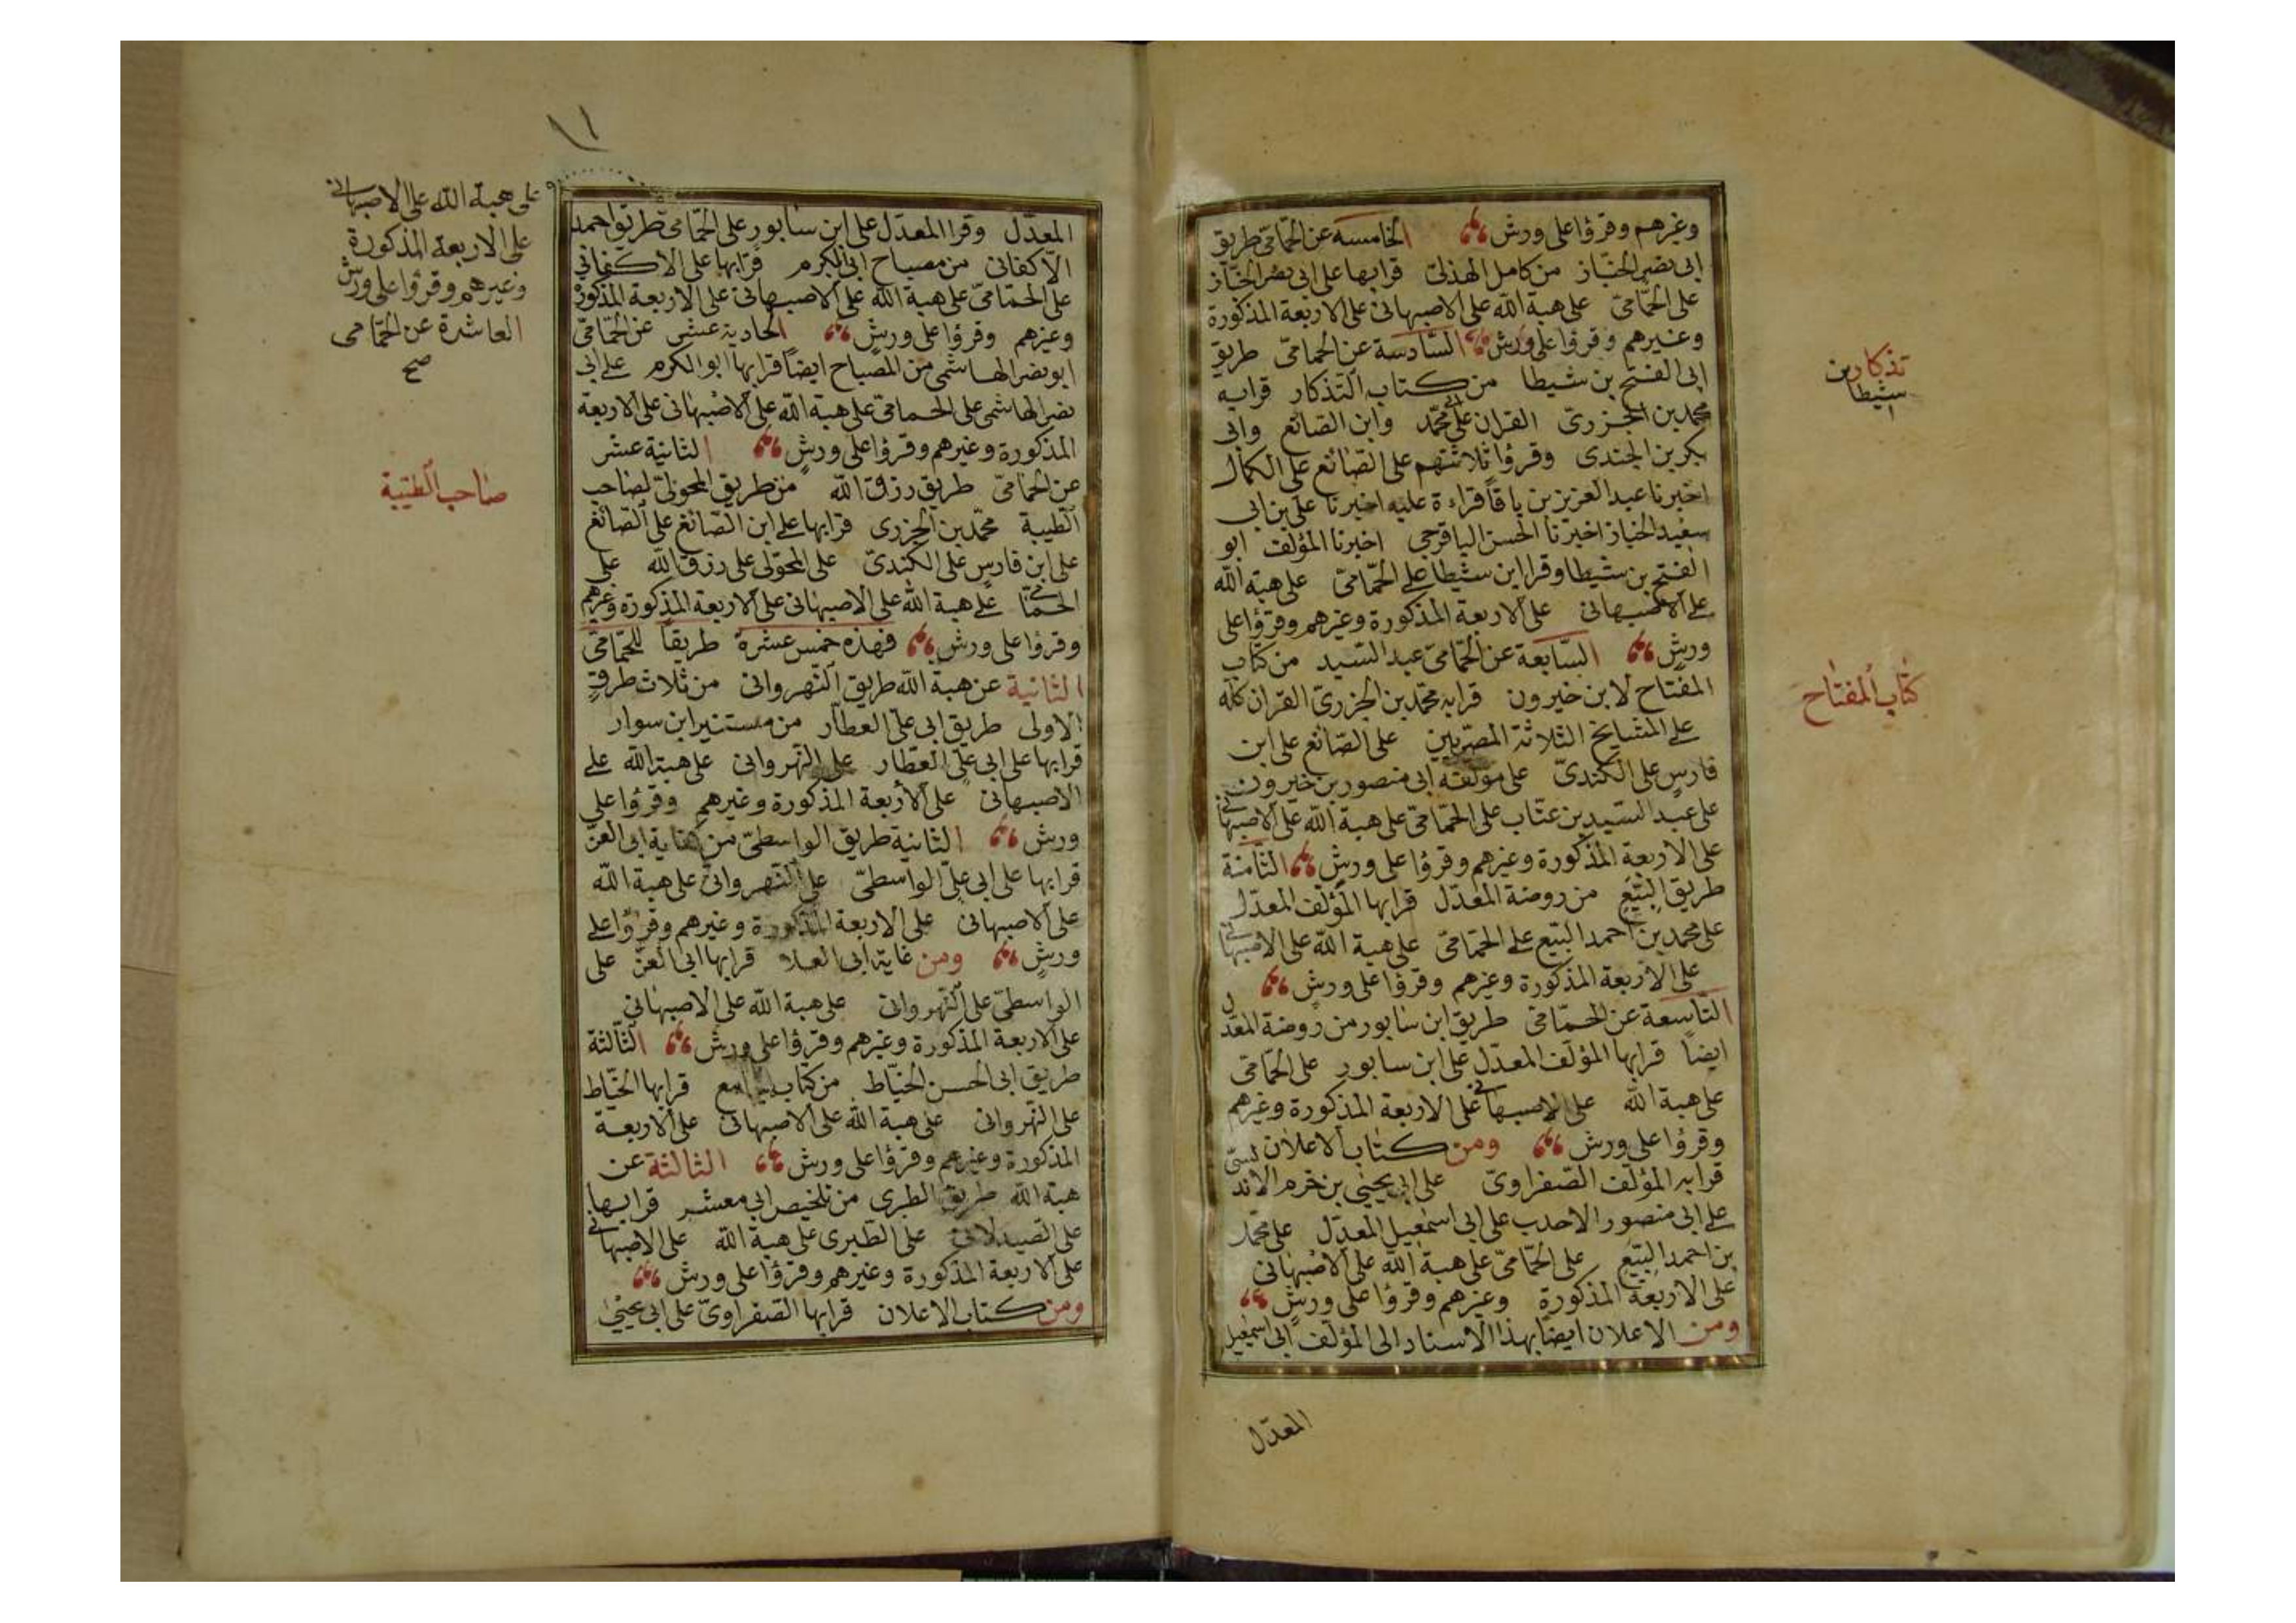 وغيرهم وقرؤا على ورش الخامسة عن الحمّامىّ طريق
ابى نصر الخبّاز من كامل الهذلىّ قرا بها على ابى نصر الخبّاز
على الحمّامىّ على هبة الله على الاصبهانى على الاربعة المذكورة
وغيرهم وقرؤا على ورش السّادسة عن الحمامىّ طريق
ابى الفتح بن شيطا من كتاب التّذكار قرا به
محمد بن الجزرىّ القران على محمّد وابن الصّائغ وابى
بكر بن الجندى وقرؤا ثلاثتهم على الصّائغ على الكمال
اخبرنا عبد العزيز بن باقا قراءة عليه اخبرنا على بن ابى
سعيد الخباز اخبرنا الحسن الباقرحى اخبرنا المؤلف ابو
الفتح بن شيطا وقرا ابن شيطا على الحمّامىّ على هبة الله
على الاصبهانى على الاربعة المذكورة وغيرهم وقرؤا على
ورش السّابعة عن الحمّامىّ عبد السّيد من كتاب
المفتاح لابن خيرون قرا به محمّد بن الجزرىّ القران كله
على المشايخ الثلاثة المصريين على الصّائغ على ابن
فارس على الكندىّ على مؤلفه ابى منصور بن خيرون
على عبد السّيد بن عتّاب على الحمّامىّ على هبة الله على الاصبهانى
على الاربعة المذكورة وغيرهم وقرؤا على ورش الثّامنة
طريق البيّع من روضة المعدّل قرا بها المؤلف المعدّل
على محمد بن احمد البيّع على الحمّامىّ على هبة الله على الاصبهانى
على الاربعة المذكورة وغيرهم وقرؤا على ورش
التّاسعة عن الحمّامىّ طريق ابن سابور من روضة المعدّل
ايضاً قرا بها المؤلف المعدّل على ابن سابور على الحمّامىّ
على هبة الله على الاصبهانى على الاربعة المذكورة وغيرهم
وقرؤا على ورش ومن كتاب الاعلان
قرا به المؤلف الصّفراوىّ على ابى يحيى بن خرم الاندلسىّ
على ابى منصور الاحدب على ابى اسمعيل المعدّل على محمّد
بن احمد البيّع على الحمّامىّ على هبة الله على الاصبهانى
على الاربعة المذكورة وغيرهم وقرؤا على ورش
ومن الاعلان ايضاً بهذا الاسناد الى المؤلف ابى اسمعيل
المعدّل
تذكار بن
شيطا
كتاب المفتاح
١١
المعدّل وقرا المعدّل على ابن سابور على الحمّامىّ طريق احمد
الاكفانى من مصباح ابى الكرم قرا بها على الاكفانى
على الحمّامىّ على هبة الله على الاصبهانى على الاربعة المذكورة
وغيرهم وقرؤا على ورش الحادية عشر عن الحمّامىّ
ابو نصر الهاشمى من المصباح ايضاً قرا بها ابو الكرم على ابى
نصر الهاشمى على الحمامىّ على هبة الله على الاصبهانى على الاربعة
المذكورة وغيرهم وقرؤا على ورش الثانية عشر
عن الحمّامىّ طريق رزق الله من طريق المحولىّ لصاحب
الطّيبة محمّد بن الجزرى قرا بها على ابن الصّائغ على الصّائغ
على ابن فارس على الكندىّ على المحوّلى على رزق الله على
الحمّامى على هبة الله على الاصبهانى على الاربعة المذكورة وغيرهم
وقرؤا على ورش فهذه خمس عشرة طريقاً للحمّامىّ
الثانية عن هبة الله طريق النّهروانى من ثلاث طرق
الاولى طريق ابى علىّ العطّار من مستنير ابن سوار
قرا بها على ابى علىّ العطّار على النّهروانى على هبة الله على
الاصبهانى على الاربعة المذكورة وغيرهم وقرؤا على
ورش الثانية طريق الواسطىّ من كفاية ابى العزّ
قرا بها على ابى علىّ الواسطىّ على النّهروانى على هبة الله
على الاصبهانى على الاربعة المذكورة وغيرهم وقرؤا على
ورش ومن غاية ابى العلا قرا بها ابى العزّ على
الواسطىّ على النّهروانى على هبة الله على الاصبهانى
على الاربعة المذكورة وغيرهم وقرؤا على ورش الثّالثة
طريق ابى الحسن الخيّاط من كتاب جامع قرا بها الخيّاط
على النّهروانى على هبة الله على الاصبهانى على الاربعة
المذكورة وغيرهم وقرؤا على ورش الثالثة عن
هبة الله طريق الطبرى من تلخيص ابى معشر قرا بها
على الصيدلانى على الطّبرى على هبة الله على الاصبهانى
على الاربعة المذكورة وغيرهم وقرؤا على ورش
ومن كتاب الاعلان قرا بها الصّفراوىّ على ابى يحيى
على هبة الله على الاصبهانى
على الاربعة المذكورة
وغيرهم وقرؤا على ورش
العاشرة عن الحمّامى
صح
صاحب الطيّبة